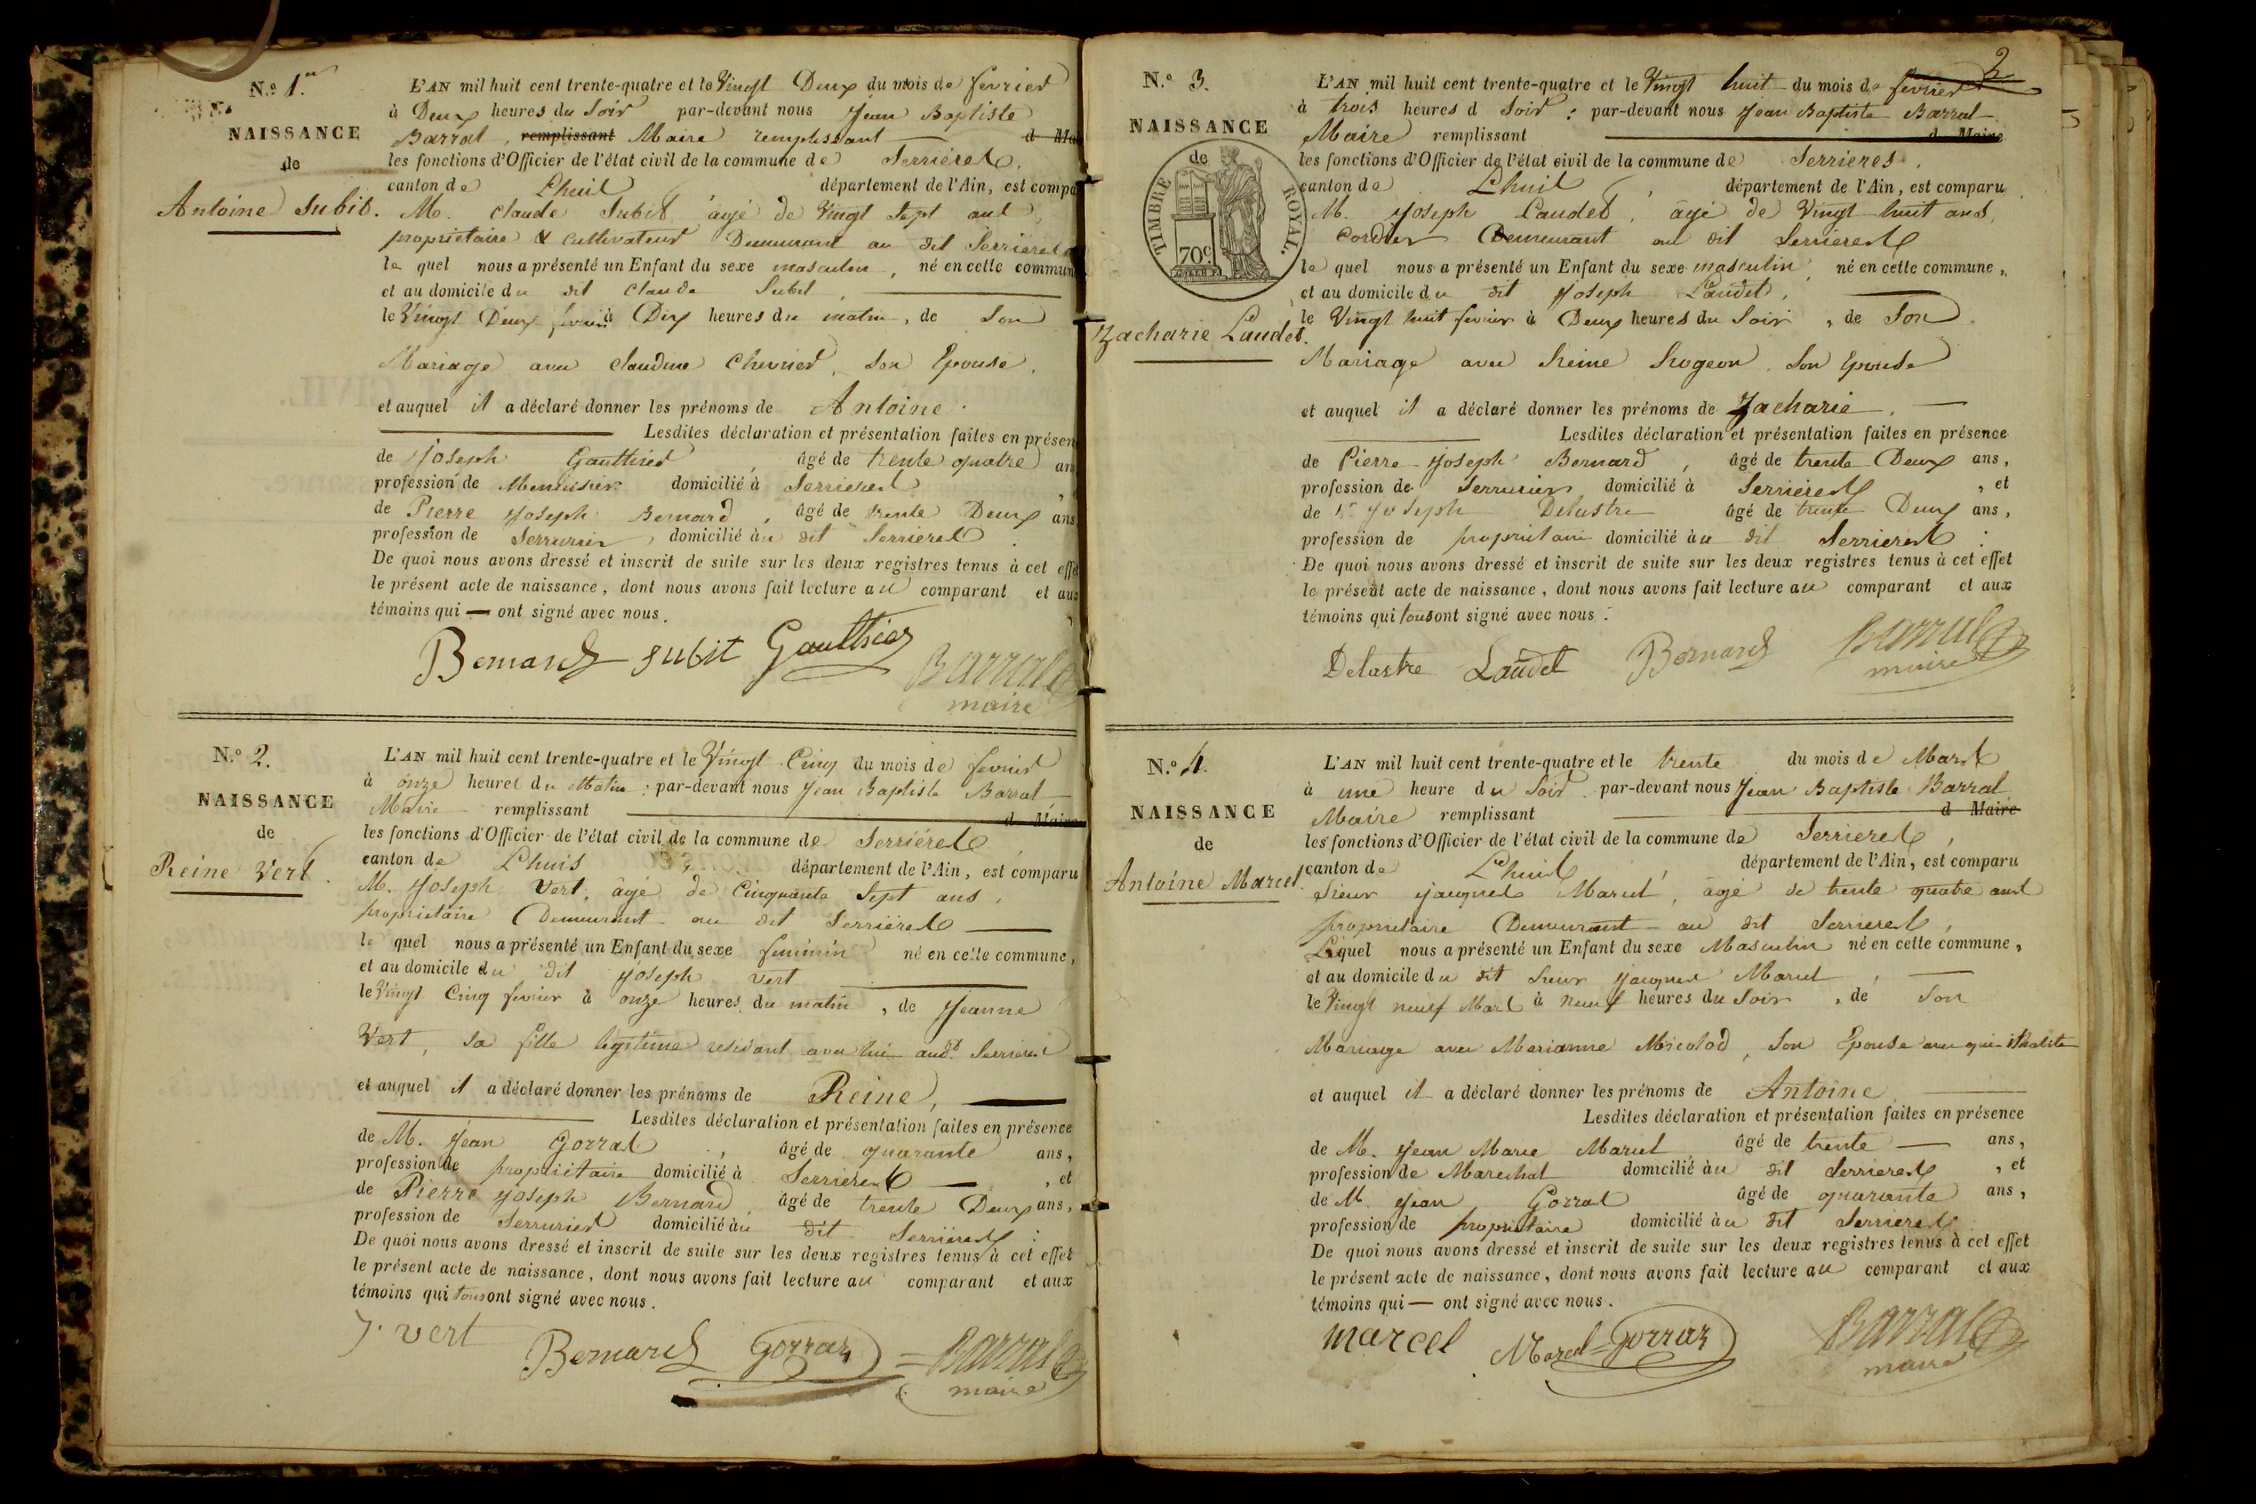 N.º 1.er
NAISSANCE
de
Antoine Subit.
L'AN mil huit cent trente-quatre et le Vingt Deux du mois de fevrier
à Deux heures du Soir par-devant nous Jean Baptiste
Barral, remplissant Maire remplissant d Ma
les fonctions d'Officier de l'état civil de la commune de Serrieres,
canton de Lhuis département de l'Ain, est compa
M. Claude Subit âgé de Vingt Sept ans,
propriétaire & cultivateur Demeurant au dit Serrieres
le quel nous a présenté un Enfant du sexe masculin, né en cette commun
et au domicile du dit Claude Subit,
le Vingt Deux fevrier à Dix heures du matin, de Son
Mariage avec Claudine Chevrier, Son Epouse,
et auquel il a déclaré donner les prénoms de Antoine.
Lesdites déclaration et présentation faites en présen
de Joseph Gauthier, âgé de trente quatre an
profession de Menuisier domicilié à Serrieres
de Pierre Joseph Bernard, âgé de trente Deux ans
profession de Serrurier domicilié au dit Serrieres
De quoi nous avons dressé et inscrit de suite sur les deux registres tenus à cet effet
le présent acte de naissance, dont nous avons fait lecture au comparant et aux
témoins qui — ont signé avec nous.
Bernard subit Gauthier Barral
maire
N.º 2.
NAISSANCE
de
Reine Vert.
L'AN mil huit cent trente-quatre et le Vingt Cinq du mois de fevrier
à onze heures du Matin; par-devant nous Jean Baptiste Barral
Maire remplissant d Maire
les fonctions d'Officier de l'état civil de la commune de Serriéres,
canton de Lhuis département de l'Ain, est comparu
M. Joseph Vert, âgé de Cinquante Sept ans,
propriétaire Demeurant au dit Serriéres
le quel nous a présenté un Enfant du sexe feminin né en cette commune,
et au domicile du dit Joseph Vert
le Vingt Cinq fevrier à onze heures du matin, de Jeanne
Vert, sa fille légitime residant avec lui audt. Serrieres
et auquel il a déclaré donner les prénoms de Reine,
Lesdites déclaration et présentation faites en présence
de M. Jean Gorrat, âgé de quarante ans,
profession de propriétaire domicilié à Serriéres, et
de Pierre Joseph Bernard, âgé de trente Deux ans,
profession de Serrurier domicilié au dit Serriéres:
De quoi nous avons dressé et inscrit de suite sur les deux registres tenus à cet effet
le présent acte de naissance, dont nous avons fait lecture au comparant et aux
témoins qui tous ont signé avec nous.
J. vert Bernard Gorraz Barral
maire
2
N.º 3.
NAISSANCE
de
TIMBRE ROYAL.
70c
Zacharie Laudet.
L'AN mil huit cent trente-quatre et le Vingt huit du mois de fevrier
à trois heures d Soir; par-devant nous Jean Baptiste Barral
Maire remplissant d Maire
les fonctions d'Officier de l'état civil de la commune de Serrieres,
canton de Lhuis, département de l'Ain, est comparu
M. Joseph Laudet, âgé de Vingt huit ans,
Cordier Demeurant au dit Serrieres
le quel nous a présenté un Enfant du sexe masculin, né en cette commune,
et au domicile du dit Joseph Laudet,
le Vingt huit fevrier à Deux heures du Soir, de Son
Mariage avec Reine Rogeon, Son Epouse
et auquel il a déclaré donner les prénoms de Zacharie.
Lesdites déclaration et présentation faites en présence
de Pierre Joseph Bernard, âgé de trente Deux ans,
profession de Serrurier domicilié à Serrieres, et
de Sr Joseph Delastre âgé de trente Deux ans,
profession de propriétaire domicilié au dit Serrieres:
De quoi nous avons dressé et inscrit de suite sur les deux registres tenus à cet effet
le présent acte de naissance, dont nous avons fait lecture au comparant et aux
témoins qui tous ont signé avec nous.
Delastre Laudet Bernard Barral
maire
N.º 4.
NAISSANCE
de
Antoine Marcel.
L'AN mil huit cent trente-quatre et le trente du mois de Mars
à une heure du Soir par-devant nous Jean Baptiste Barral
Maire remplissant d Maire
les fonctions d'Officier de l'état civil de la commune de Serrieres,
canton de Lhuis, département de l'Ain, est comparu
Sieur Jacques Marcel, âgé de trente quatre ans
propriétaire Demeurant au dit Serrieres,
Lequel nous a présenté un Enfant du sexe Masculin né en cette commune,
et au domicile du dit Sieur Jacques Marcel,
le Vingt neuf Mars à neuf heures du Soir, de Son
Mariage avec Marianne Micolod, Son Epouse avec qui il habite
et auquel il a déclaré donner les prénoms de Antoine
Lesdites déclaration et présentation faites en présence
de M. Jean Marie Marcel âgé de trente — ans,
profession de Marechal domicilié au dit Serrieres, et
de M. Jean Gorrat âgé de quarante ans,
profession de propriétaire domicilié au dit Serrieres
De quoi nous avons dressé et inscrit de suite sur les deux registres tenus à cet effet
le présent acte de naissance, dont nous avons fait lecture au comparant et aux
témoins qui — ont signé avec nous.
marcel Marcel Gorraz Barral
maire